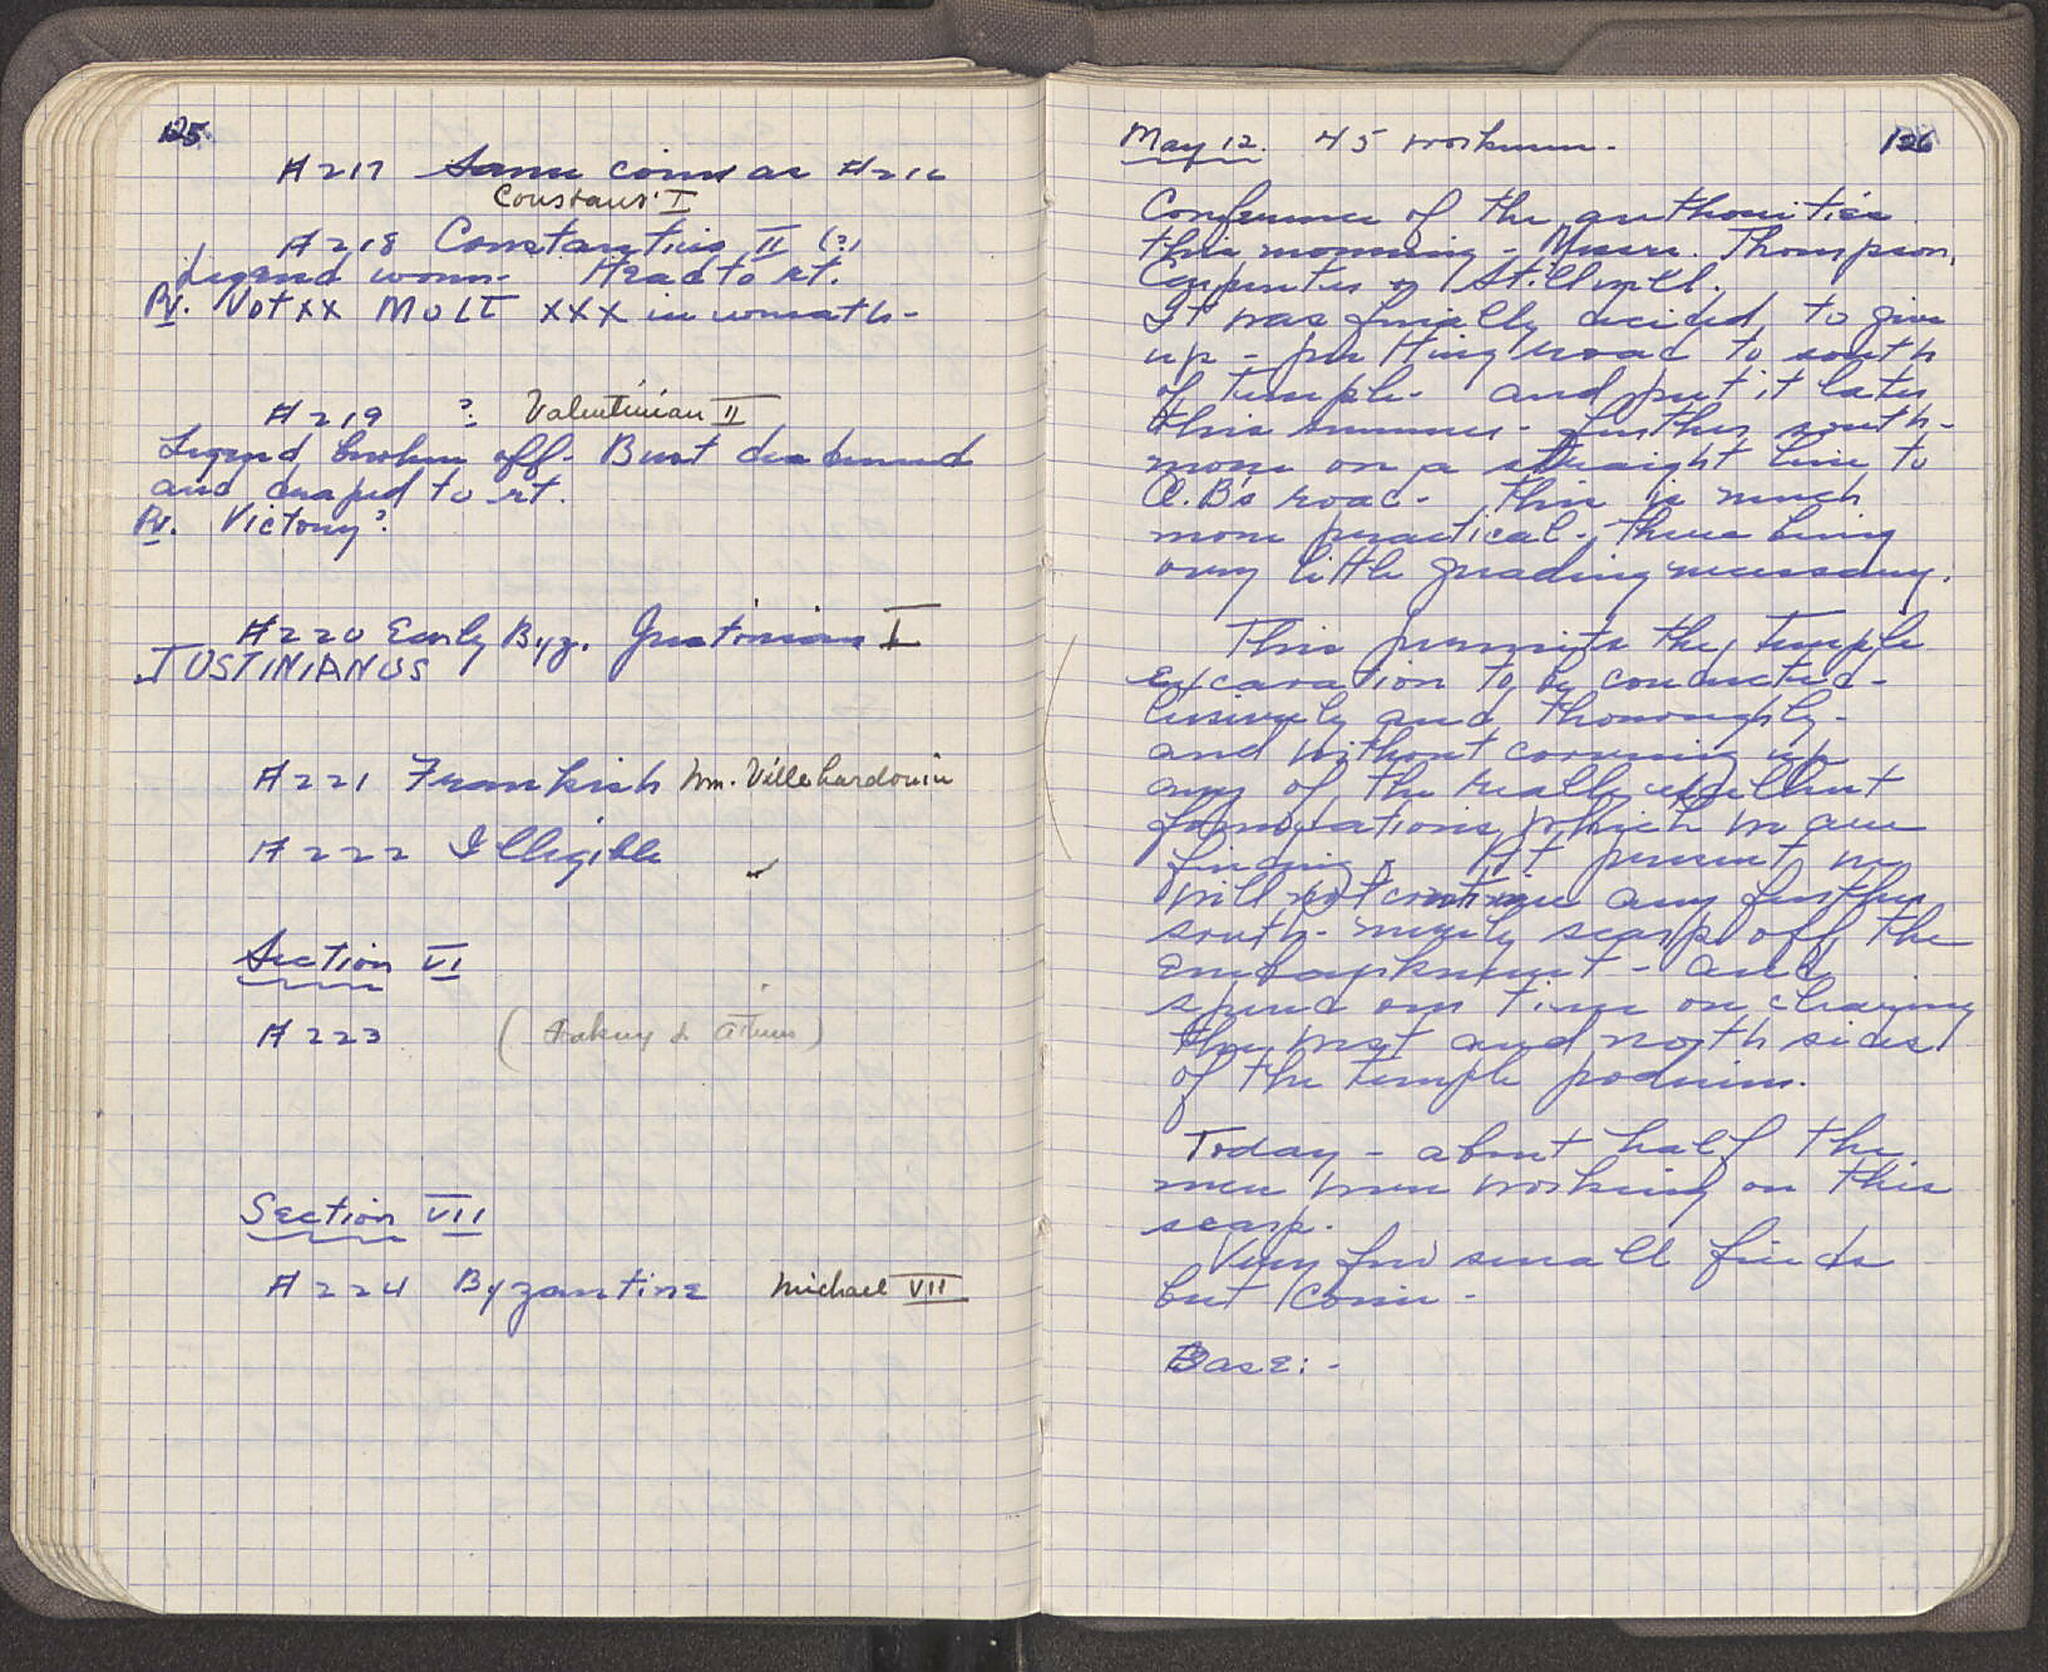 125
#217 Same coin as #216
Constans I
#218 Constantius II (?)
Legend worn. Head to rt.
Rv. Vot XX MULT XXX in wreath-
#219 ? Valentinian II
Legend broken off. Bust diademed
and draped to rt.
Rv. Victory?
#220 Early Byz. Justinian I
JUSTINIANUS
#221 Frankish Wm. Villehardouin
#222 Illegible
Section VI
#223 ( to Athens)
Section VII
#224 Byzantine Michael VII
May 12. 45 workmen. 126
Conference of the authorities
this morning - Messrs. Thompson,
Carpenter & Stillwell.
It was finally decided to give
up - putting road to south
of temple - and put it later
this summer - further south -
more on a straight line to
O.B's road - this is much
more practical - there being
very little grading necessary.
This permits the temple
excavation to be conducted -
leisurely and thoroughly -
and without covering up
any of the really excellent
foundations which we are
finding. At present we
will not continue any further
south - merely scarp off the
embankment - and
spend our time on clearing
the west and north sides
of the temple podium.
Today - about half the
men were working on this
scarp.
Very few small finds
but coins -
Base: -